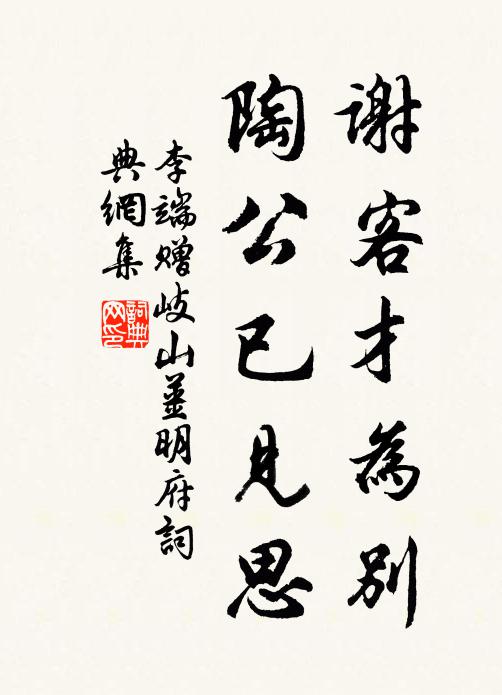 謝客才為別
陶公已見思
李端贈岐山姜明府詞
典網集
詞典
网印